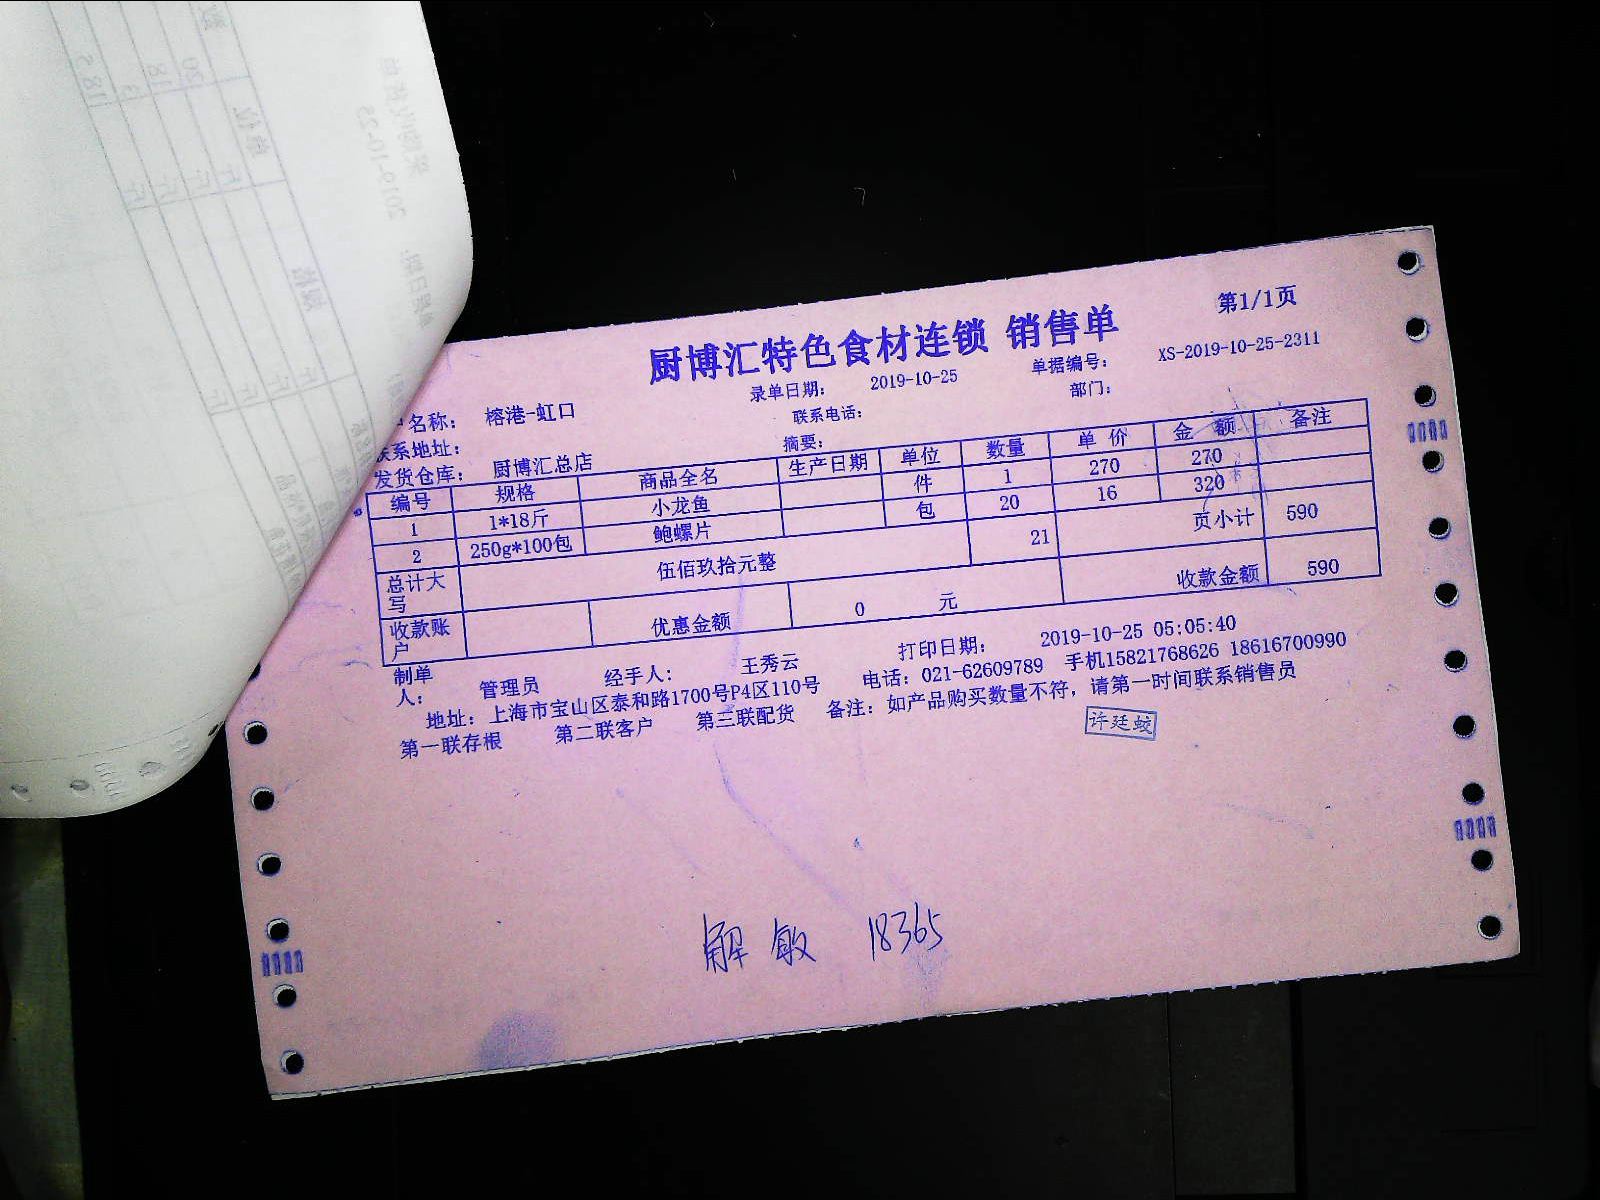 厨博汇特色食材连锁 销售单
第1/1页
户名称： 榕港-虹口 录单日期： 2019-10-25 单据编号： XS-2019-10-25-2311
联系地址： 联系电话： 部门：
发货仓库： 厨博汇总店 摘要：
编号 规格 商品全名 生产日期 单位 数量 单 价 金 额 备注
1 1*18斤 小龙鱼 件 1 270 270
2 250g*100包 鲍螺片 包 20 16 320
总计大写 伍佰玖拾元整 21 页小计 590
收款账户 优惠金额 0 元 收款金额 590
制单人： 管理员 经手人： 王秀云 打印日期： 2019-10-25 05:05:40
地址：上海市宝山区泰和路1700号P4区110号 电话：021-62609789 手机15821768626 18616700990
第一联存根 第二联客户 第三联配货 备注：如产品购买数量不符，请第一时间联系销售员
许廷蛟
解敏 18365